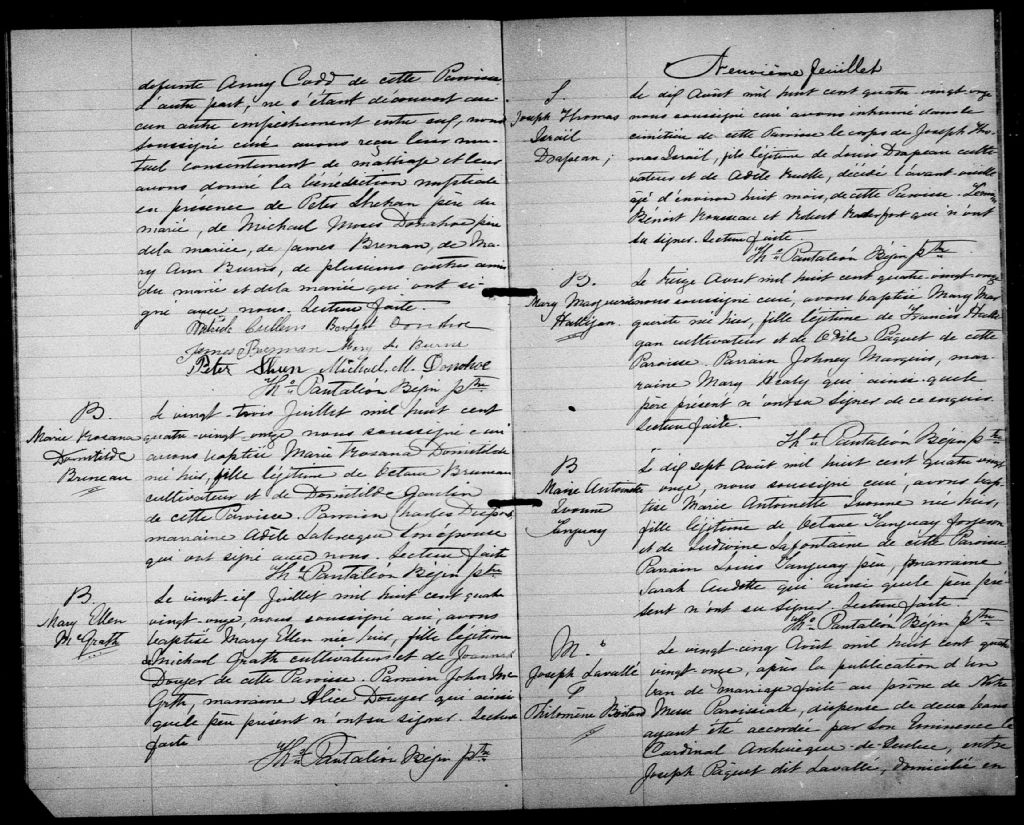 defunte Anny Codd de cette Paroisse
d'autre part, ne s'étant découvert au-
cun autre empêchement entre eux, nous
soussigné curé avons reçu leur mu-
tuel consentement de mariage et leur
avons donné la bénédiction nuptiale
en présence de Peter Shehan père du
marié, de Michael Moses Donahoe père
dela mariée, de James Brenan, de Ma-
ry Ann Burns, de plusieurs autres amis
du marié et dela mariée qui ont si-
gné avec nous. Lecture faite.
Cullens Bridget Donohoe
James Brennan Mary A Burns
Peter Sheen Michael. M. Donohoe
Ths Pantaléon Bégin ptre
B.
Marie Rosana
Domitilde
Bruneau
Le vingt-trois Juillet mil huit cent
quatre-vingt-onze nous soussigné curé
avons baptisé Marie Rosana Domitilde
née hier, fille légitime de Octave Bruneau
cultivateur et de Domitilde Goulin
de cette Paroisse. Parrain Charles
marraine Adèle son épouse
qui ont signé avec nous. Lecture faite
Ths Pantaléon Bégin ptre
B
Mary Ellen
McGrath
Le vingt-six Juillet mil huit cent quatre
vingt-onze, nous soussigné curé, avons
baptisé Mary Ellen née hier, fille légitime
Michael Grath cultivateur et de Joannah
Dwyer de cette Paroisse. Parrain John Mc
Grath, marraine Alice Dwyer qui ainsi
quele père présent n'ont su signer. Lecture
faite
Ths Pantaléon Bégin ptre
Neuvième feuillet
S.
Joseph Thomas
Israël
Drapeau;
Le dix Août mil huit cent quatre-vingt-onze
nous soussigné curé avons inhumé dans le
cimetière de cette Paroisse le corps de Joseph Tho-
mas Israël, fils légitime de Louis Drapeau culti-
vateur et de Adèle Ruelle, décédé l'avant-veille
âgé d'environ huit mois, de cette Paroisse. Témoins
Bénoni Rousseau et Robert qui n'ont
su signer. Lecture faite.
Ths Pantaléon Bégin ptre
B.
Mary Marguerite
Hattigan.
Le treize Août mil huit cent quatre-vingt-onze
nous soussigné curé, avons baptisé Mary Mar-
guerite née hier, fille légitime de Francis Hatti-
gan cultivateur et de Odile Paquet de cette
Paroisse. Parrain Johney Marquis, mar-
raine Mary Healy qui ainsi quele
père présent n'ont su signer de ce enquis.
Lecture faite.
Ths Pantaléon Bégin ptre
B
Marie Antoinette
Ivonne
Tanguay
Le dix sept Août mil huit cent quatre vingt
onze, nous soussigné curé, avons bap-
tisé Marie Antoinette Ivonne née hier,
fille légitime de Octave Tanguay forgeron
et de Ludivine Lafontaine de cette Paroisse
Parrain Louis Tanguay père, marraine
Sarah Audette qui ainsi quele père pré-
sent n'ont su signer. Lecture faite.
Ths Pantaléon Bégin ptre
M.
Joseph Lavallé
&
Philomène
Le vingt-cinq Août mil huit cent quatre
vingt onze, après la publication d'un
ban de mariage faite au prône de Notre
Messe Paroissiale, dispense de deux bans
ayant été accordée par Son Eminence le
Cardinal Archevêque de Québec, entre
Joseph Pâquet dit Lavallée, domicilié en